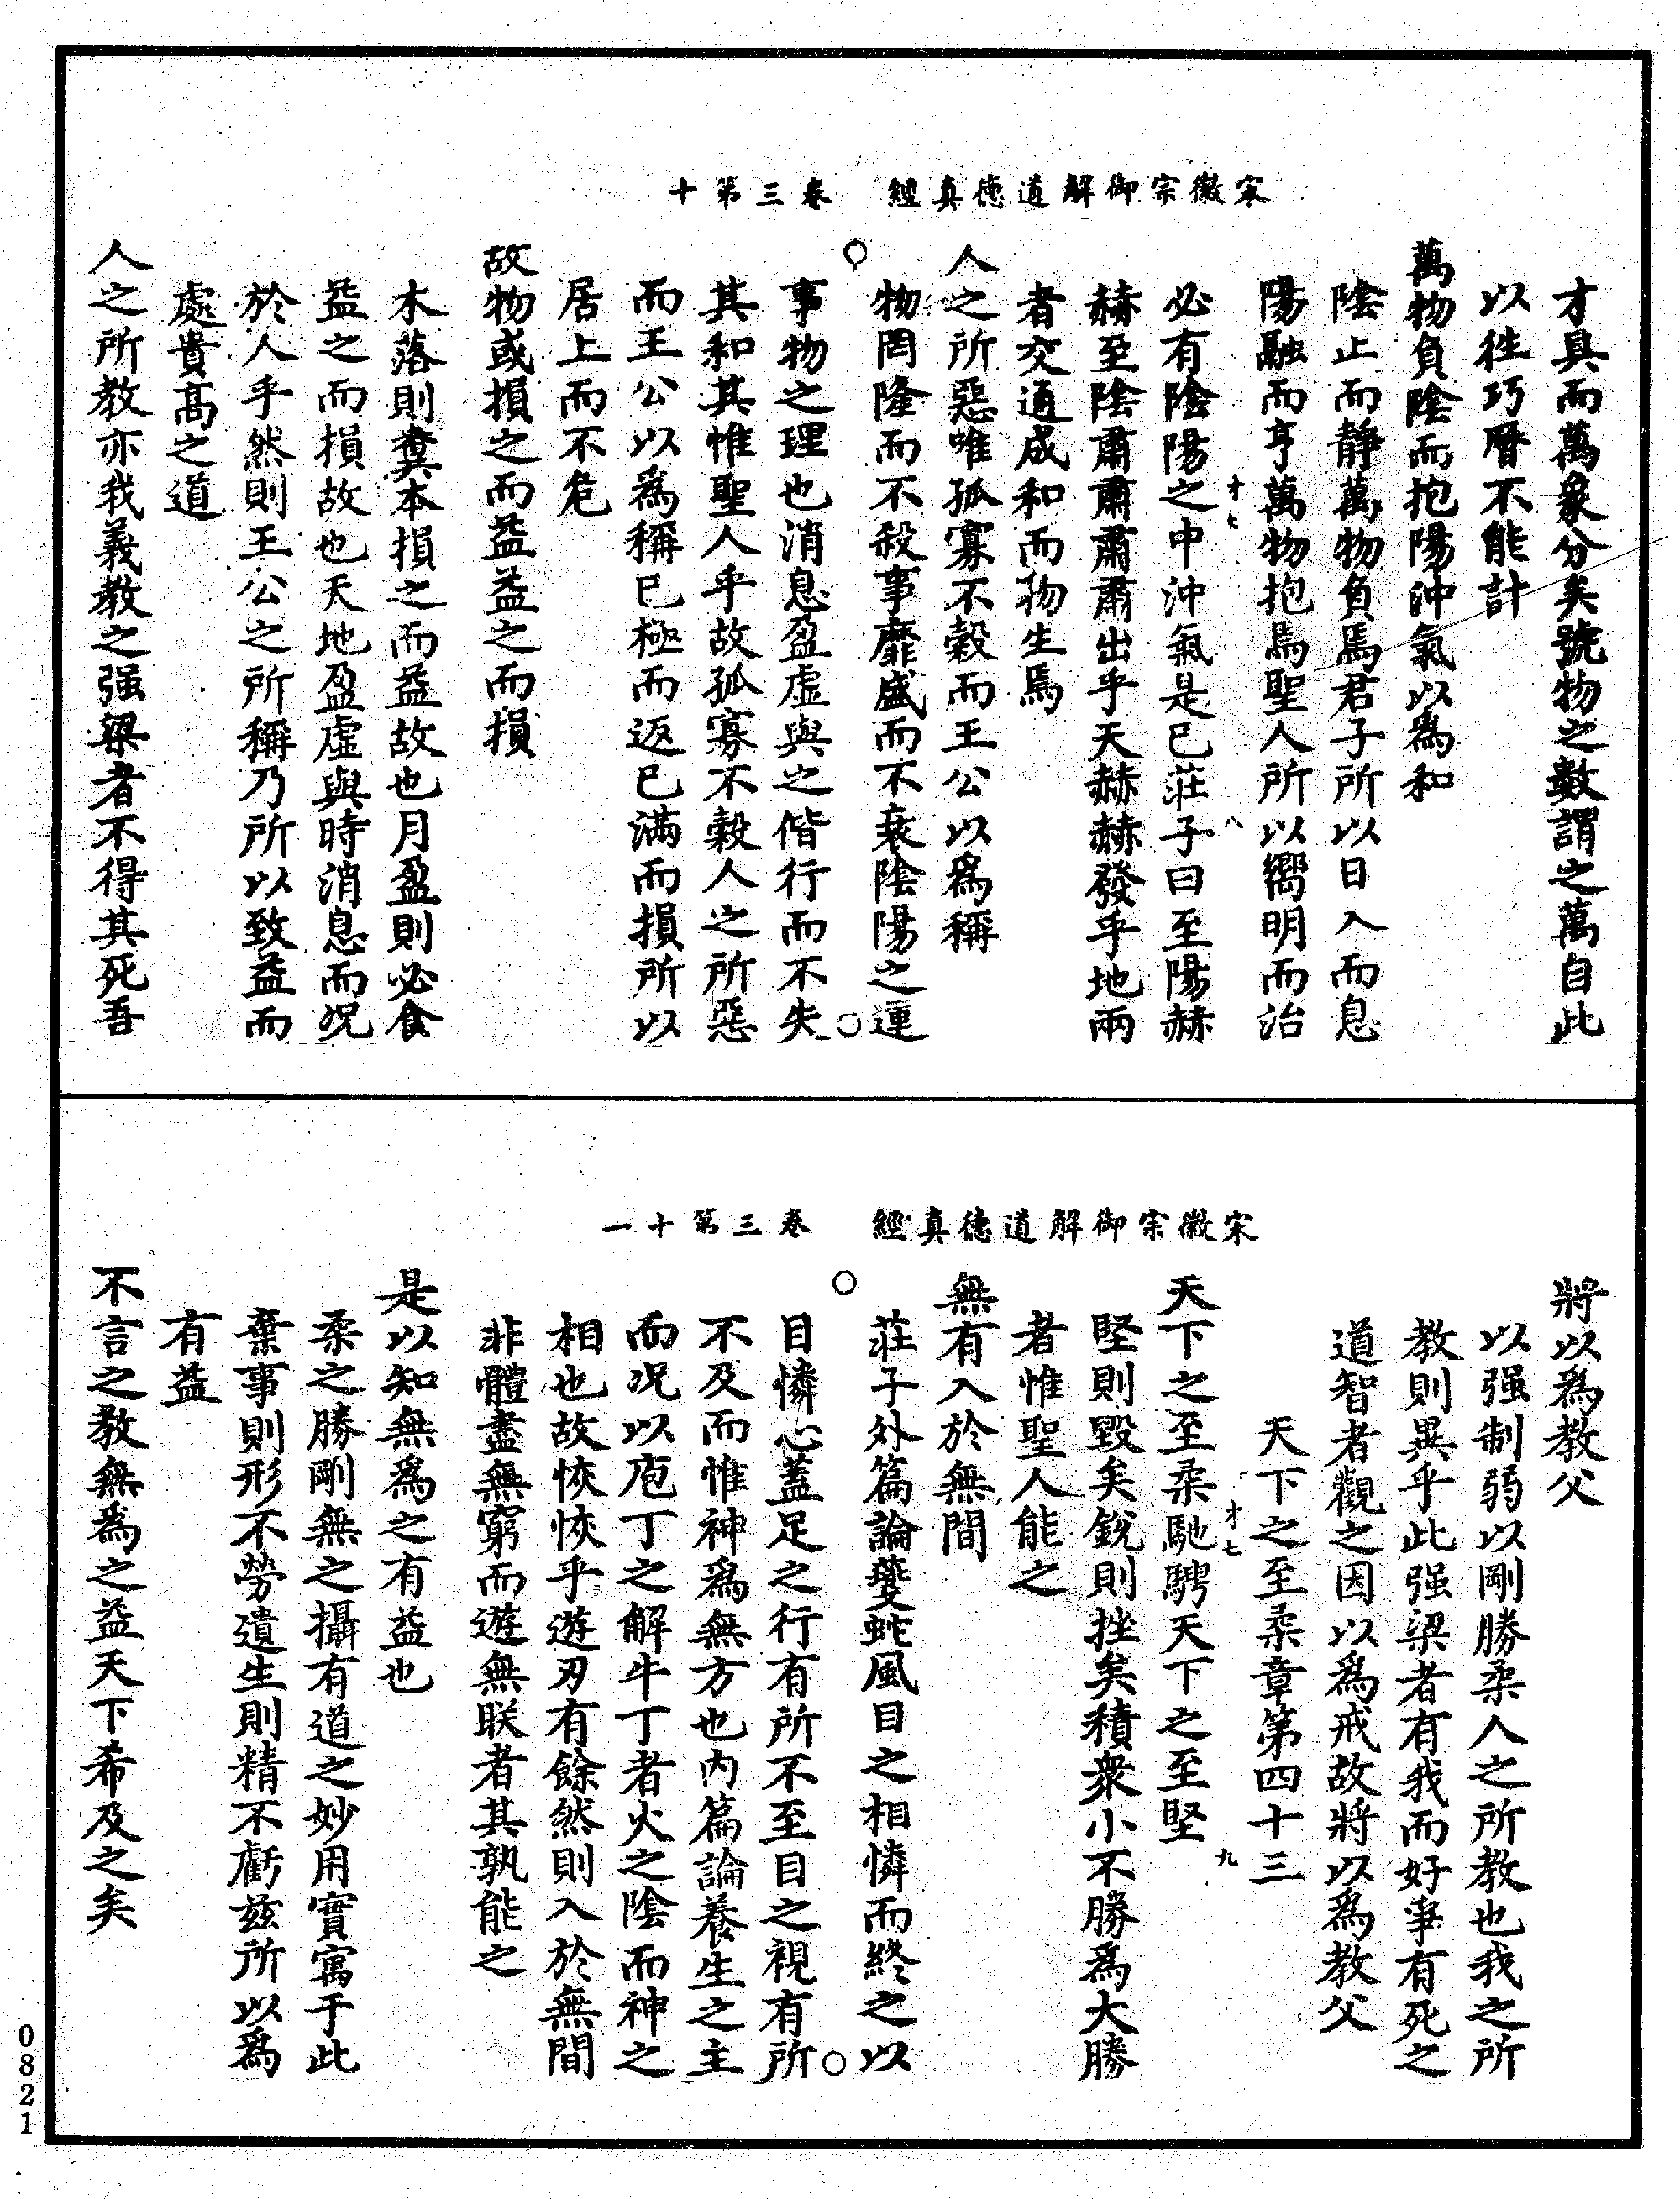 宋徽宗御解道德真經　卷三第十
才具而萬象分矣號物之數謂之萬自此
以往巧曆不能計
萬物負陰而抱陽沖氣以為和
陰止而靜萬物負焉君子所以日入而息
陽融而亨萬物抱焉聖人所以嚮明而治
才七　八
必有陰陽之中沖氣是已莊子曰至陽赫
赫至陰肅肅肅肅出乎天赫赫發乎地兩
者交通成和而物生焉
人之所惡唯孤寡不穀而王公以為稱
物罔隆而不殺事靡盛而不衰陰陽之運
事物之理也消息盈虛與之偕行而不失
其和其惟聖人乎故孤寡不穀人之所惡
而王公以為稱已極而返已滿而損所以
居上而不危
故物或損之而益益之而損
木落則糞本損之而益故也月盈則必食
益之而損故也天地盈虛與時消息而況
於人乎然則王公之所稱乃所以致益而
處貴高之道
人之所教亦我義教之强梁者不得其死吾
宋徽宗御解道德真經　卷三第十一
將以為教父
以强制弱以剛勝柔人之所教也我之所
教則異乎此强梁者有我而好爭有死之
道智者觀之因以為戒故將以為教父
天下之至柔章第四十三
才七　九
天下之至柔馳騁天下之至堅
堅則毀矣銳則挫矣積衆小不勝為大勝
者惟聖人能之
無有入於無間
莊子外篇論夔蛇風目之相憐而終之以
目憐心蓋足之行有所不至目之視有所
不及而惟神為無方也內篇論養生之主
而况以庖丁之解牛丁者火之陰而神之
相也故恢恢乎遊刃有餘然則入於無間
非體盡無窮而遊無朕者其孰能之
是以知無為之有益也
柔之勝剛無之攝有道之妙用實寓于此
棄事則形不勞遺生則精不虧兹所以為
有益
不言之教無為之益天下希及之矣
0821